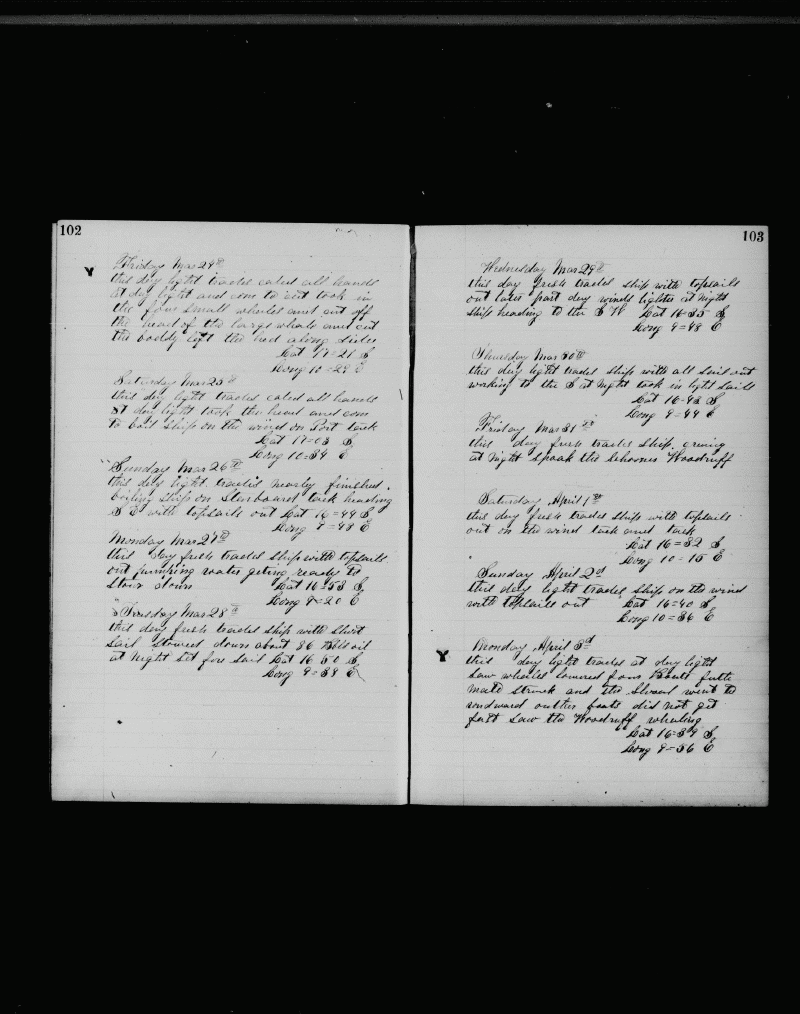 102
Friday Mar 24th
this day light trades caled all hands
at day light and com to cut took in
the four small whales and cut off
the head of the large whale and cut
the boddy left the hed along side
Lat 17=21 S
Long 10=24 E
Saturday Mar 25th
this day light trades caled all hands
at day light took the head and com
to boil ship on the wind on Port tack
Lat 17=03 S
Long 10=34 E
Sunday Mar 26th
this day light trades nearly finished
boiling ship on Starboard tack heading
S E with topsails out Lat 16=49 S
Long 9=48 E
Monday Mar 27th
this day fresh trades ship with topsails
out pumping water geting ready to
stow down Lat 16=53 S
Long 9=20 E
Tuesday Mar 28th
this day fresh trades ship with short
sail stowed down about 86 Bbls oil
at Night set fore sail Lat 16=50 S
Long 9=39 E
103
Wednesday Mar 29th
this day fresh trades ship with topsails
out later part day winds lighter at Night
ship heading to the Lat 16=35 S
Long 9=48 E
Thursday Mar 30th
this day light trades ship with all sail out
working to the S at Night took in light sails
Lat 16=42 S
Long 9=44 E
Friday Mar 31st
this day fresh trades ship
at Night spoak the schooner Woodruff
Saturday April 1st
this day fresh trades ship with topsails
out on the wind tack and tack
Lat 16=32 S
Long 10=15 E
Sunday April 2d
this day light trades ship on the wind
with topsails out Lat 16=40 S
Long 10=36 E
Monday April 3d
this day light trades at day light
saw whales lowered four Boats
mate struck and the went to
windward other boats did not get
fast saw the Woodruff whaleing
Lat 16=39 S
Long 9=56 E